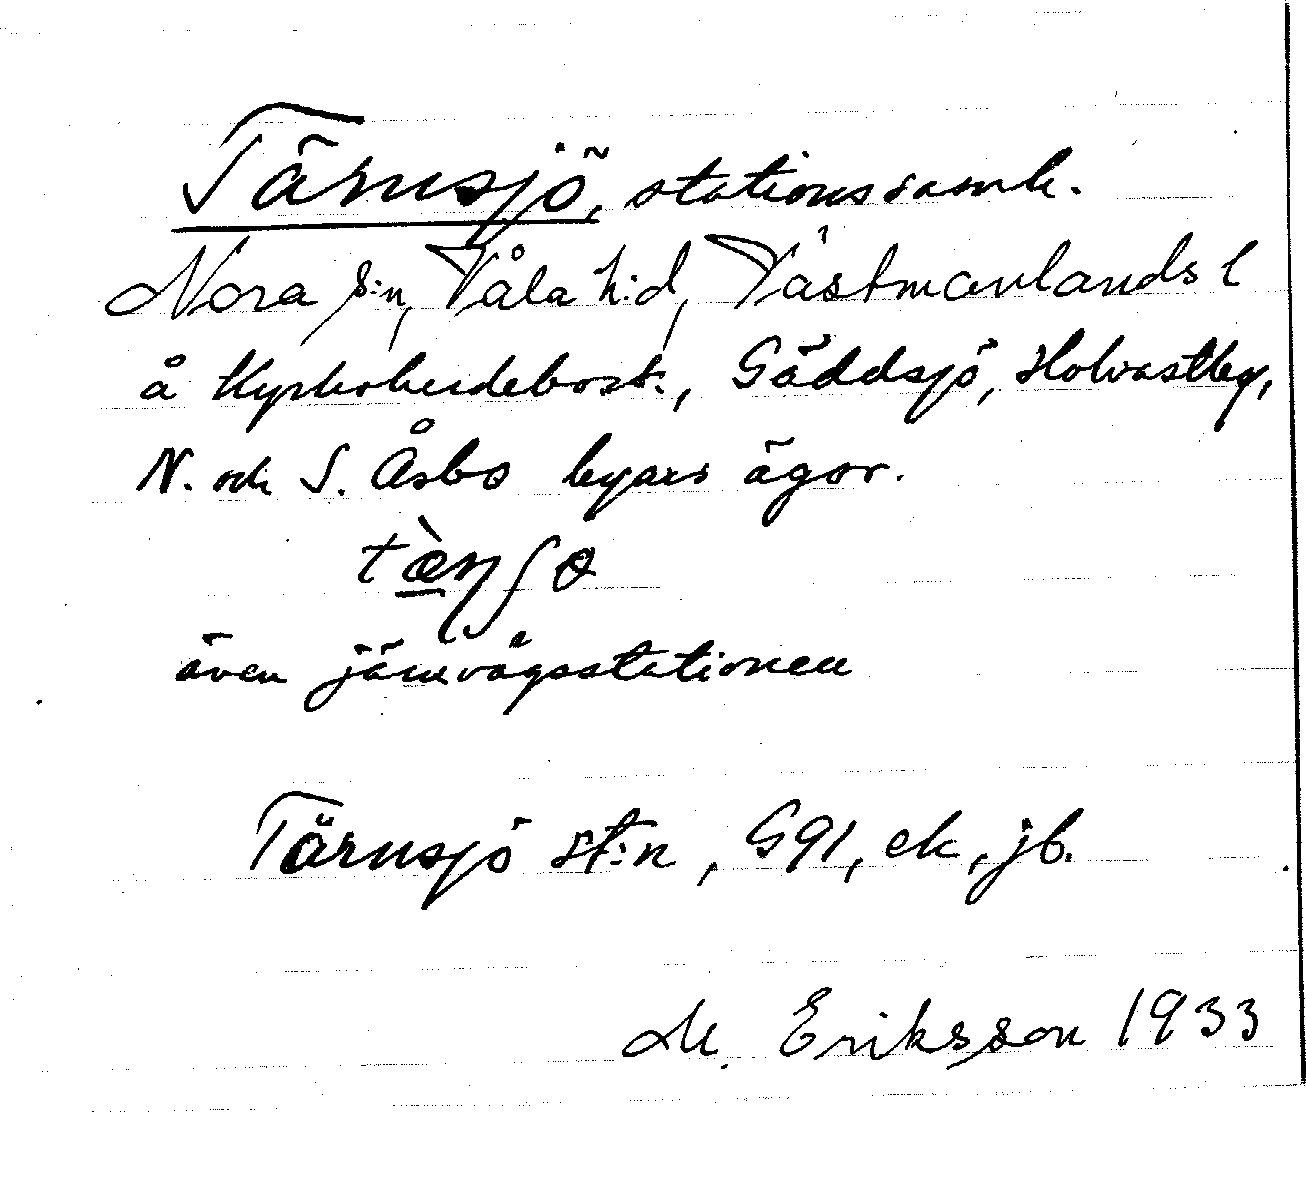 Tärnsjö, stationssamh.
Nora s:n, Våla h:d, Västmanlands l
å Kyrkoherdebost., Gäddsjö, Holvastby,
N. och S. Åsbo byars ägor.
tæ̀ŋʃɵ
även järnvägsstationen
Tärnsjö st:n, G91, ek, jb.
M. Eriksson 1933